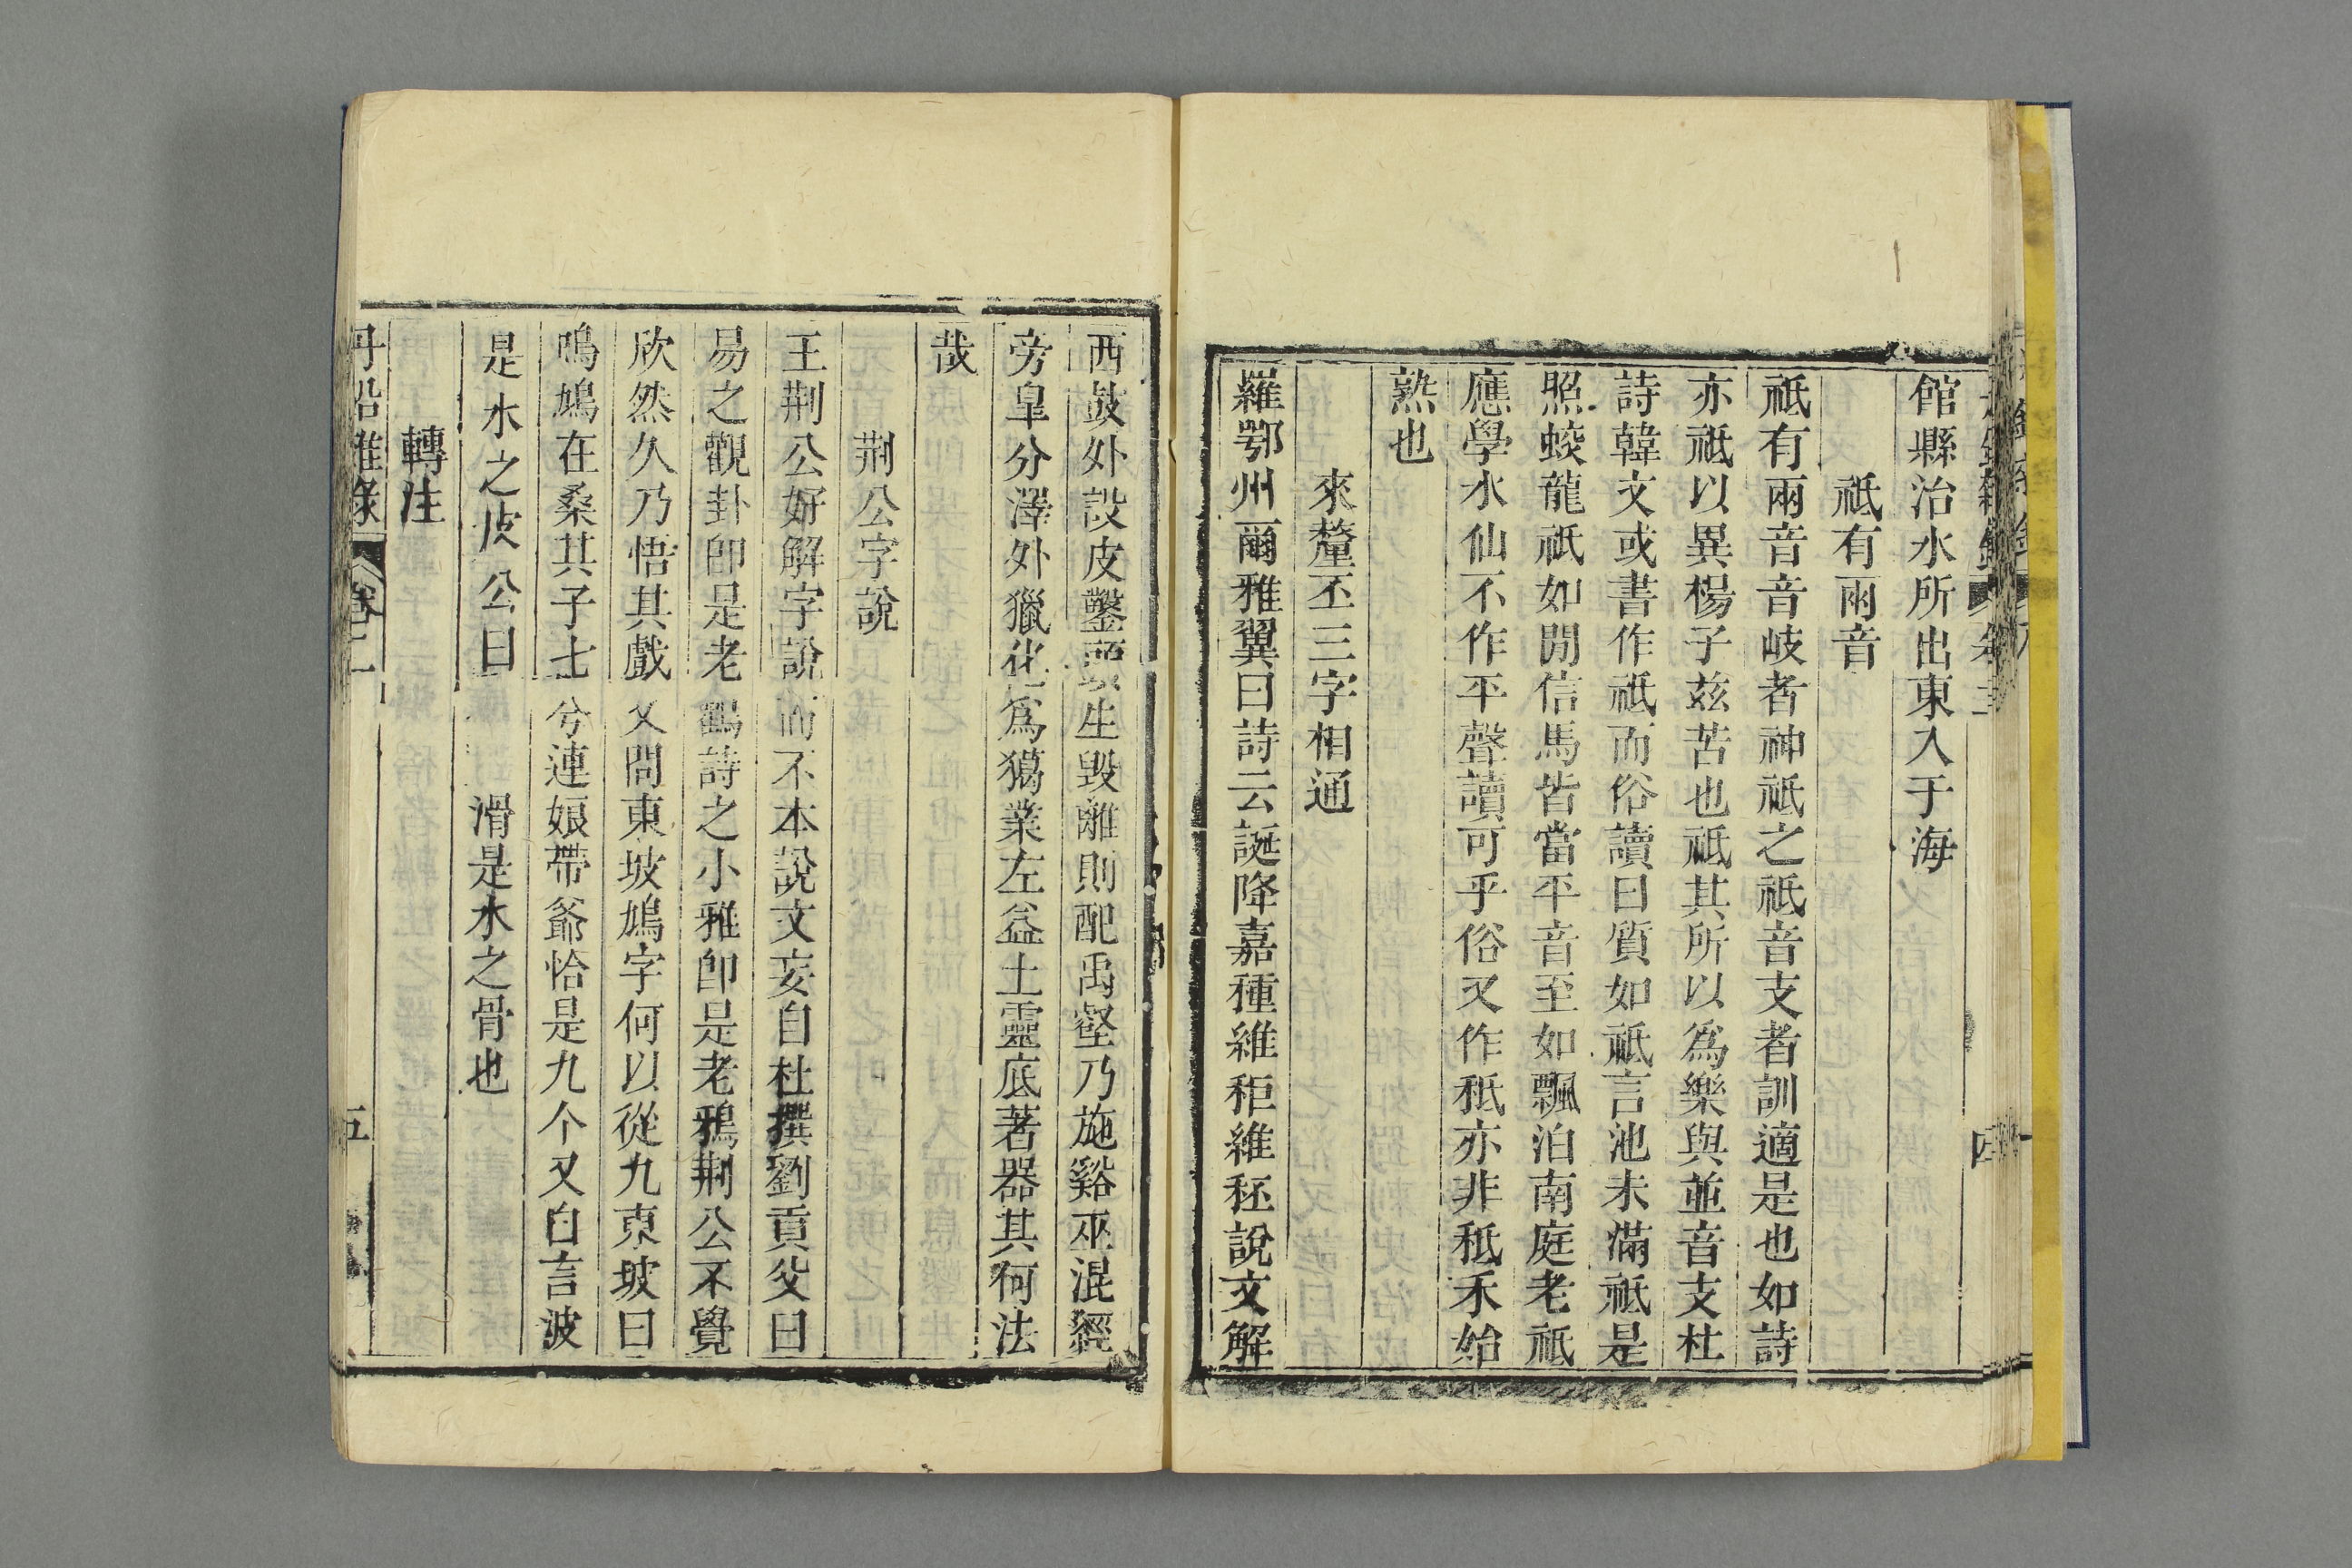 館縣治水所出東入于海
祗有兩音
祗有兩音音岐者神祗之祗音支者訓適是也如詩
亦祗以異楊子茲苦也祗其所以為樂與並音支杜
詩韓文或書作祗而俗讀曰質如祗言池未滿祗是
照蛟龍祇如閒信馬皆當平音至如飄泊南庭老祇
應學水仙不作平聲讀可乎俗又作秪亦非秪禾始
熟也
來釐丕三字相通
羅鄂州爾雅翼曰詩云誕降嘉種維秬維秠說文解
西鼓外設皮鑿頭生毀離則配禹壑乃施谿巫混經
旁皐分澤外獵化為獦業左益土靈底著器其何法
哉
荆公字說
王荆公好解字說而不本說文妄自杜撰劉貢父曰
易之觀卦卽是老鸛詩之小雅卽是老鴉荆公不覺
欣然久乃悟其戲又問東坡鳩字何以從九東坡曰
鳲鳩在桑其子七兮連娘帶爺恰是九个又自言波
是水之皮公曰滑是水之骨也
轉注
丹鉛雜錄 卷二 五